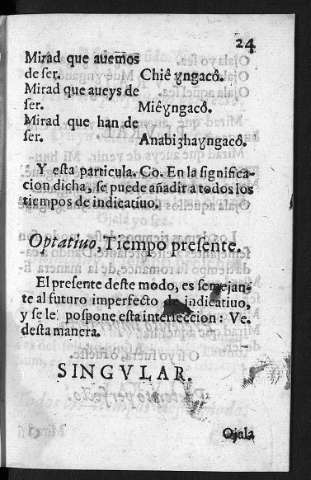 24
Mirad que auemos
de ser. Chiê ɣngacô.
Mirad que aueys de
ser. Miêɣngacô.
Mirad que han de
ser. Anabiʒhaɣngacô.
Y esta particula. Co. En la significa-
cion dicha, se puede añadir a todos los
tiempos de indicatiuo.
Optatiuo, Tiempo presente.
El presente deste modo, es semejan-
te al futuro imperfecto de indicatiuo,
y se le pospone esta interjeccion: Ve.
desta manera.
SINGVLAR.
Ojala